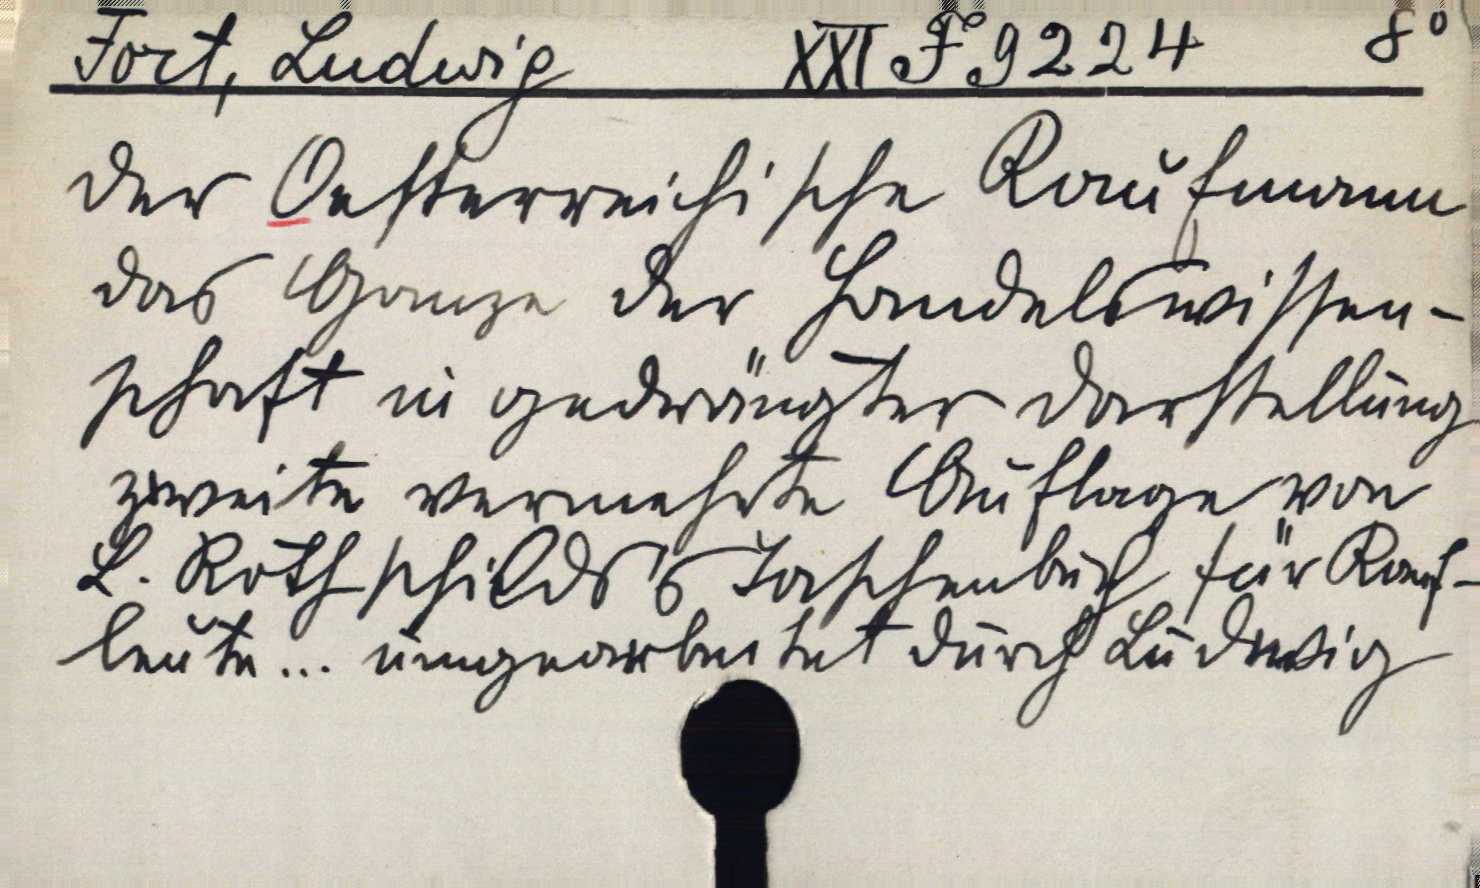 Fort, Ludwig XXI F 9224 8°
Der Oesterreichische Kaufmann
das Ganze der Handelswissen-
schaft in gedrängter Darstellung
zweite vermehrte Auflage von
L. Rothschilds's Taschenbuch für Kauf-
leute... umgearbeitet durch Ludwig